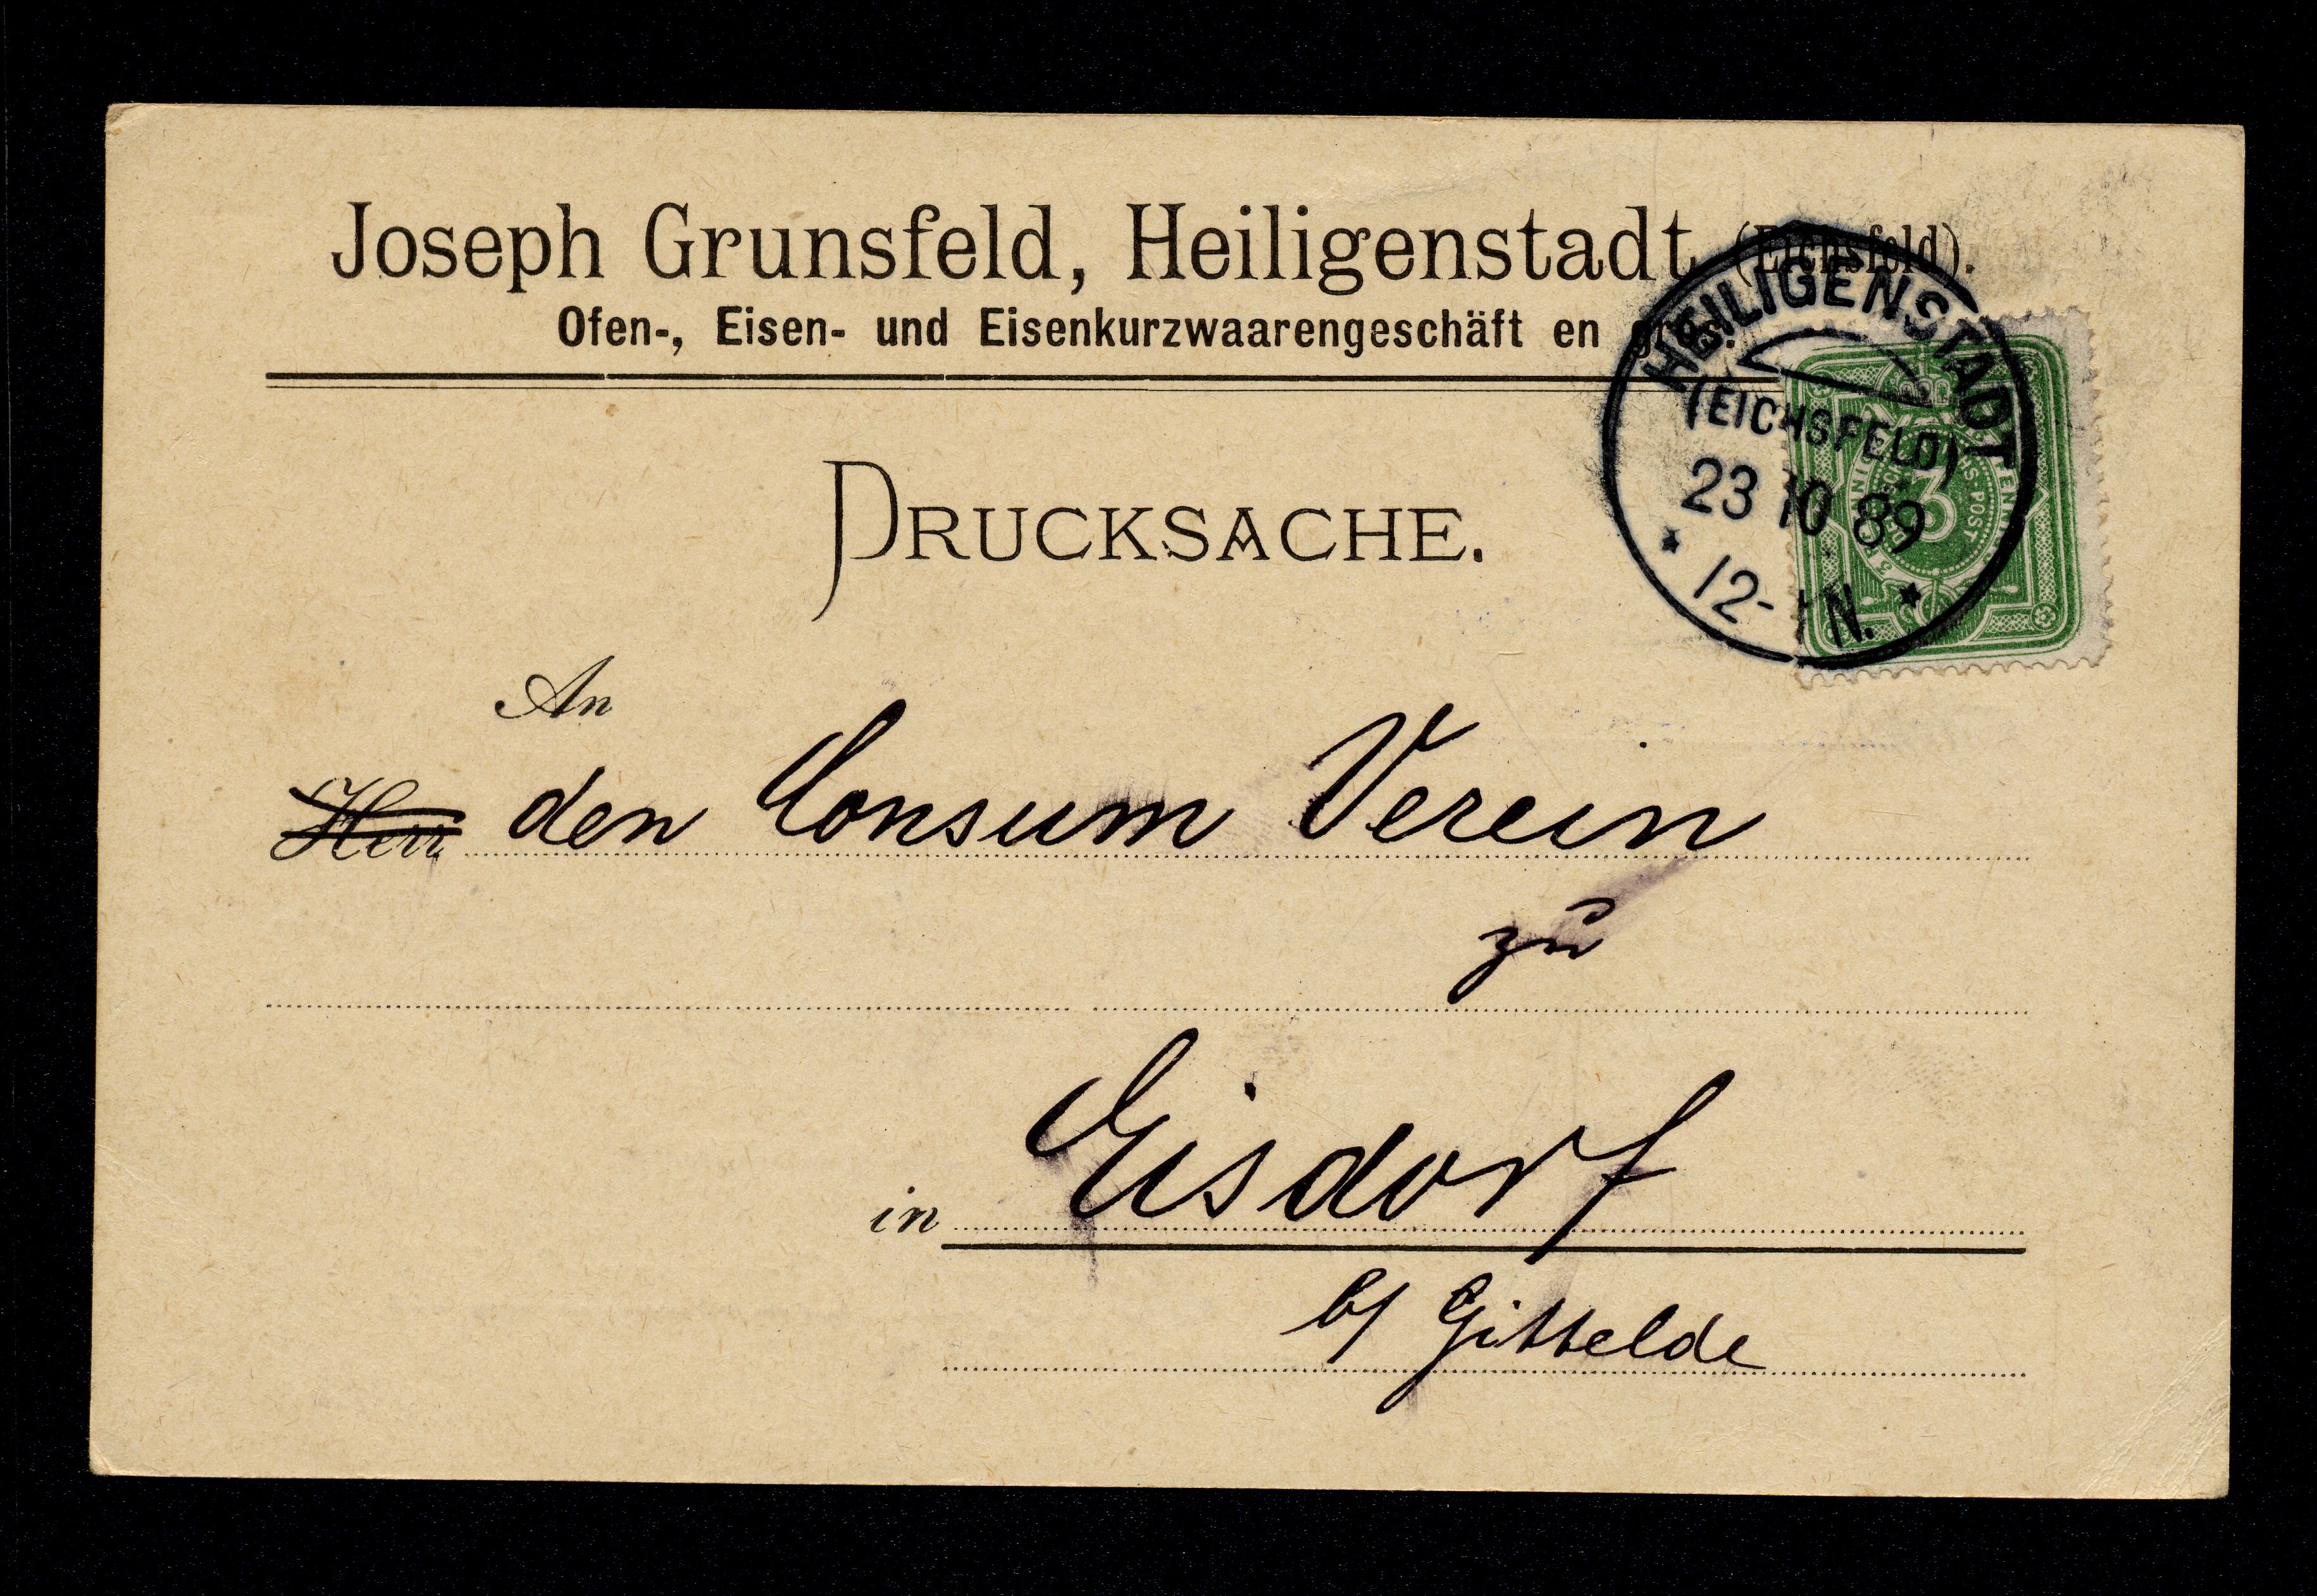 Joseph Grunsfeld, Heiligenstadt (Eichsfeld).
Ofen-, Eisen- und Eisenkurzwaarengeschäft en gros.
HEILIGENSTADT
(EICHSFELD)
23 10 89
* 12- 1 N. *
3
DRUCKSACHE.
An
Herr den Consum Verein
zu
in Eisdorf
b/ Gittelde